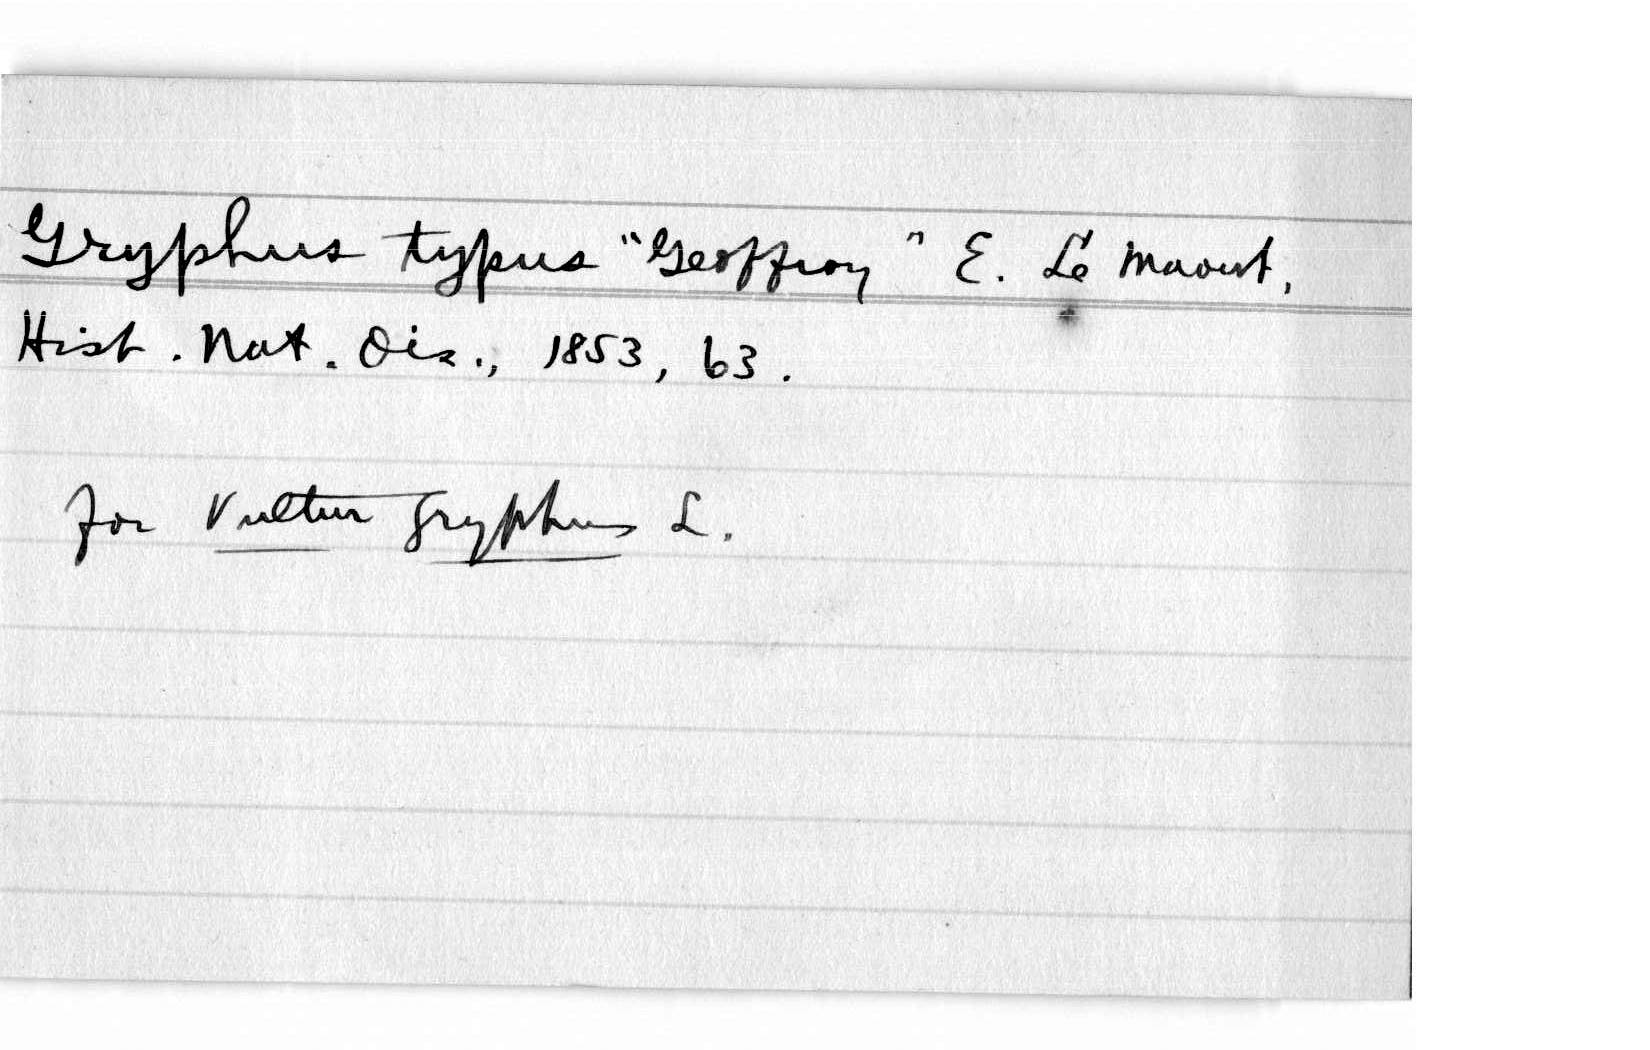 Gryphus typus "Geoffroy" E. Le Maout,
Hist. Nat. Ois., 1853, 63.
for Vultur gryphus L.